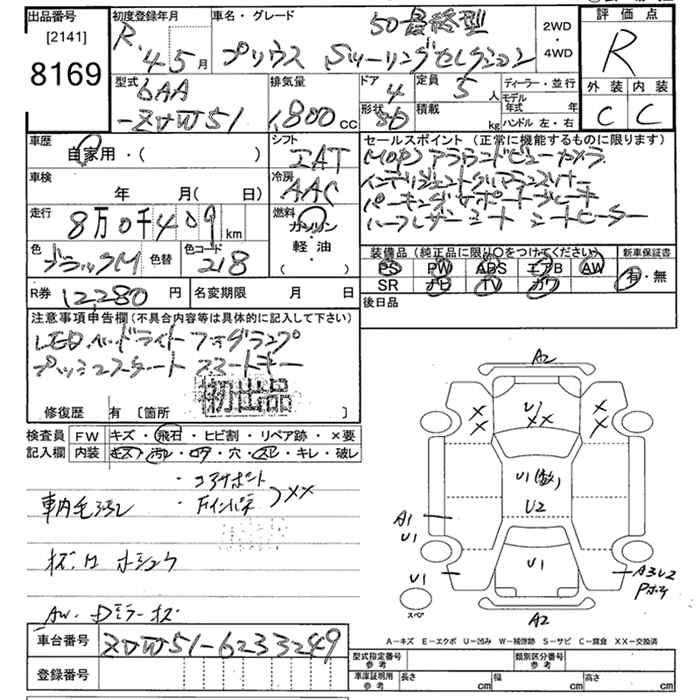 出品番号 初度登録年月 車名・グレード 50最終型 2WD 評価点
[2141] R. 4-5月 プリウス Sツーリングセレクション ・4WD R
8169
型式 排気量 ドア 定員 ディーラー・並行 外装 内装
6AA 1,800 CC 4 5人 モデル年式 年 C C
-ZVW51 形状 5D 積載 kg ハンドル 左・右
車歴 シフト セールスポイント (正常に機能するものに限ります)
自家用・( ) IAT (MOP) アラウンドビューカメラ
車検 冷房 インテリジェントクリアランスソナー
年 月( 日) AAC パーキングサポートブレーキ
走行 8万0千409km 燃料 ハーフレザーシート シートヒーター
ガソリン
・軽油・
( )
色 ブラックM 色替 色コード 218 装備品 (純正品に限り○をつけてください) 新車保証書
PS PW ABS エアB AW 有・無
SR ナビ TV カワ
R券 12,280円 名変期限 月 日 後日品
注意事項申告欄 (不具合内容等は具体的に記入して下さい)
LEDヘッドライト フォグランプ
プッシュスタート スマートキー
初出品
修復歴 有 [箇所 ]
検査員 FW キズ・飛石・ヒビ割・リペア跡・×要
記入欄 内装 キズ・汚レ・コゲ・穴・スレ・キレ・破レ
・コアサポート
・Fインパネ XX
車内毛汚レ
AW・Dミラーキズ
車台番号 ZVW51-6233249
登録番号
A2
XX U1 XX
XX
U1
U2
A1
U1
U1 U1 A3U2
スペア
A2
A−キズ E−エクボ U−凹み W−補修跡 S−サビ C−腐食 XX−交換済
型式指定番号 参考 類別区分番号 参考
車庫証明用 参考 長さ cm 幅 cm 高さ cm